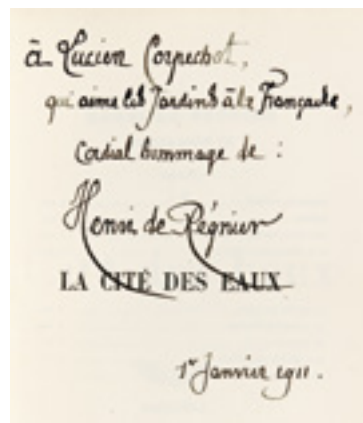 à Lucien Corpechot,
qui aime les Jardins à la Française,
Cordial hommage de :
Henri de Régnier
LA CITÉ DES EAUX
1er Janvier 1911.